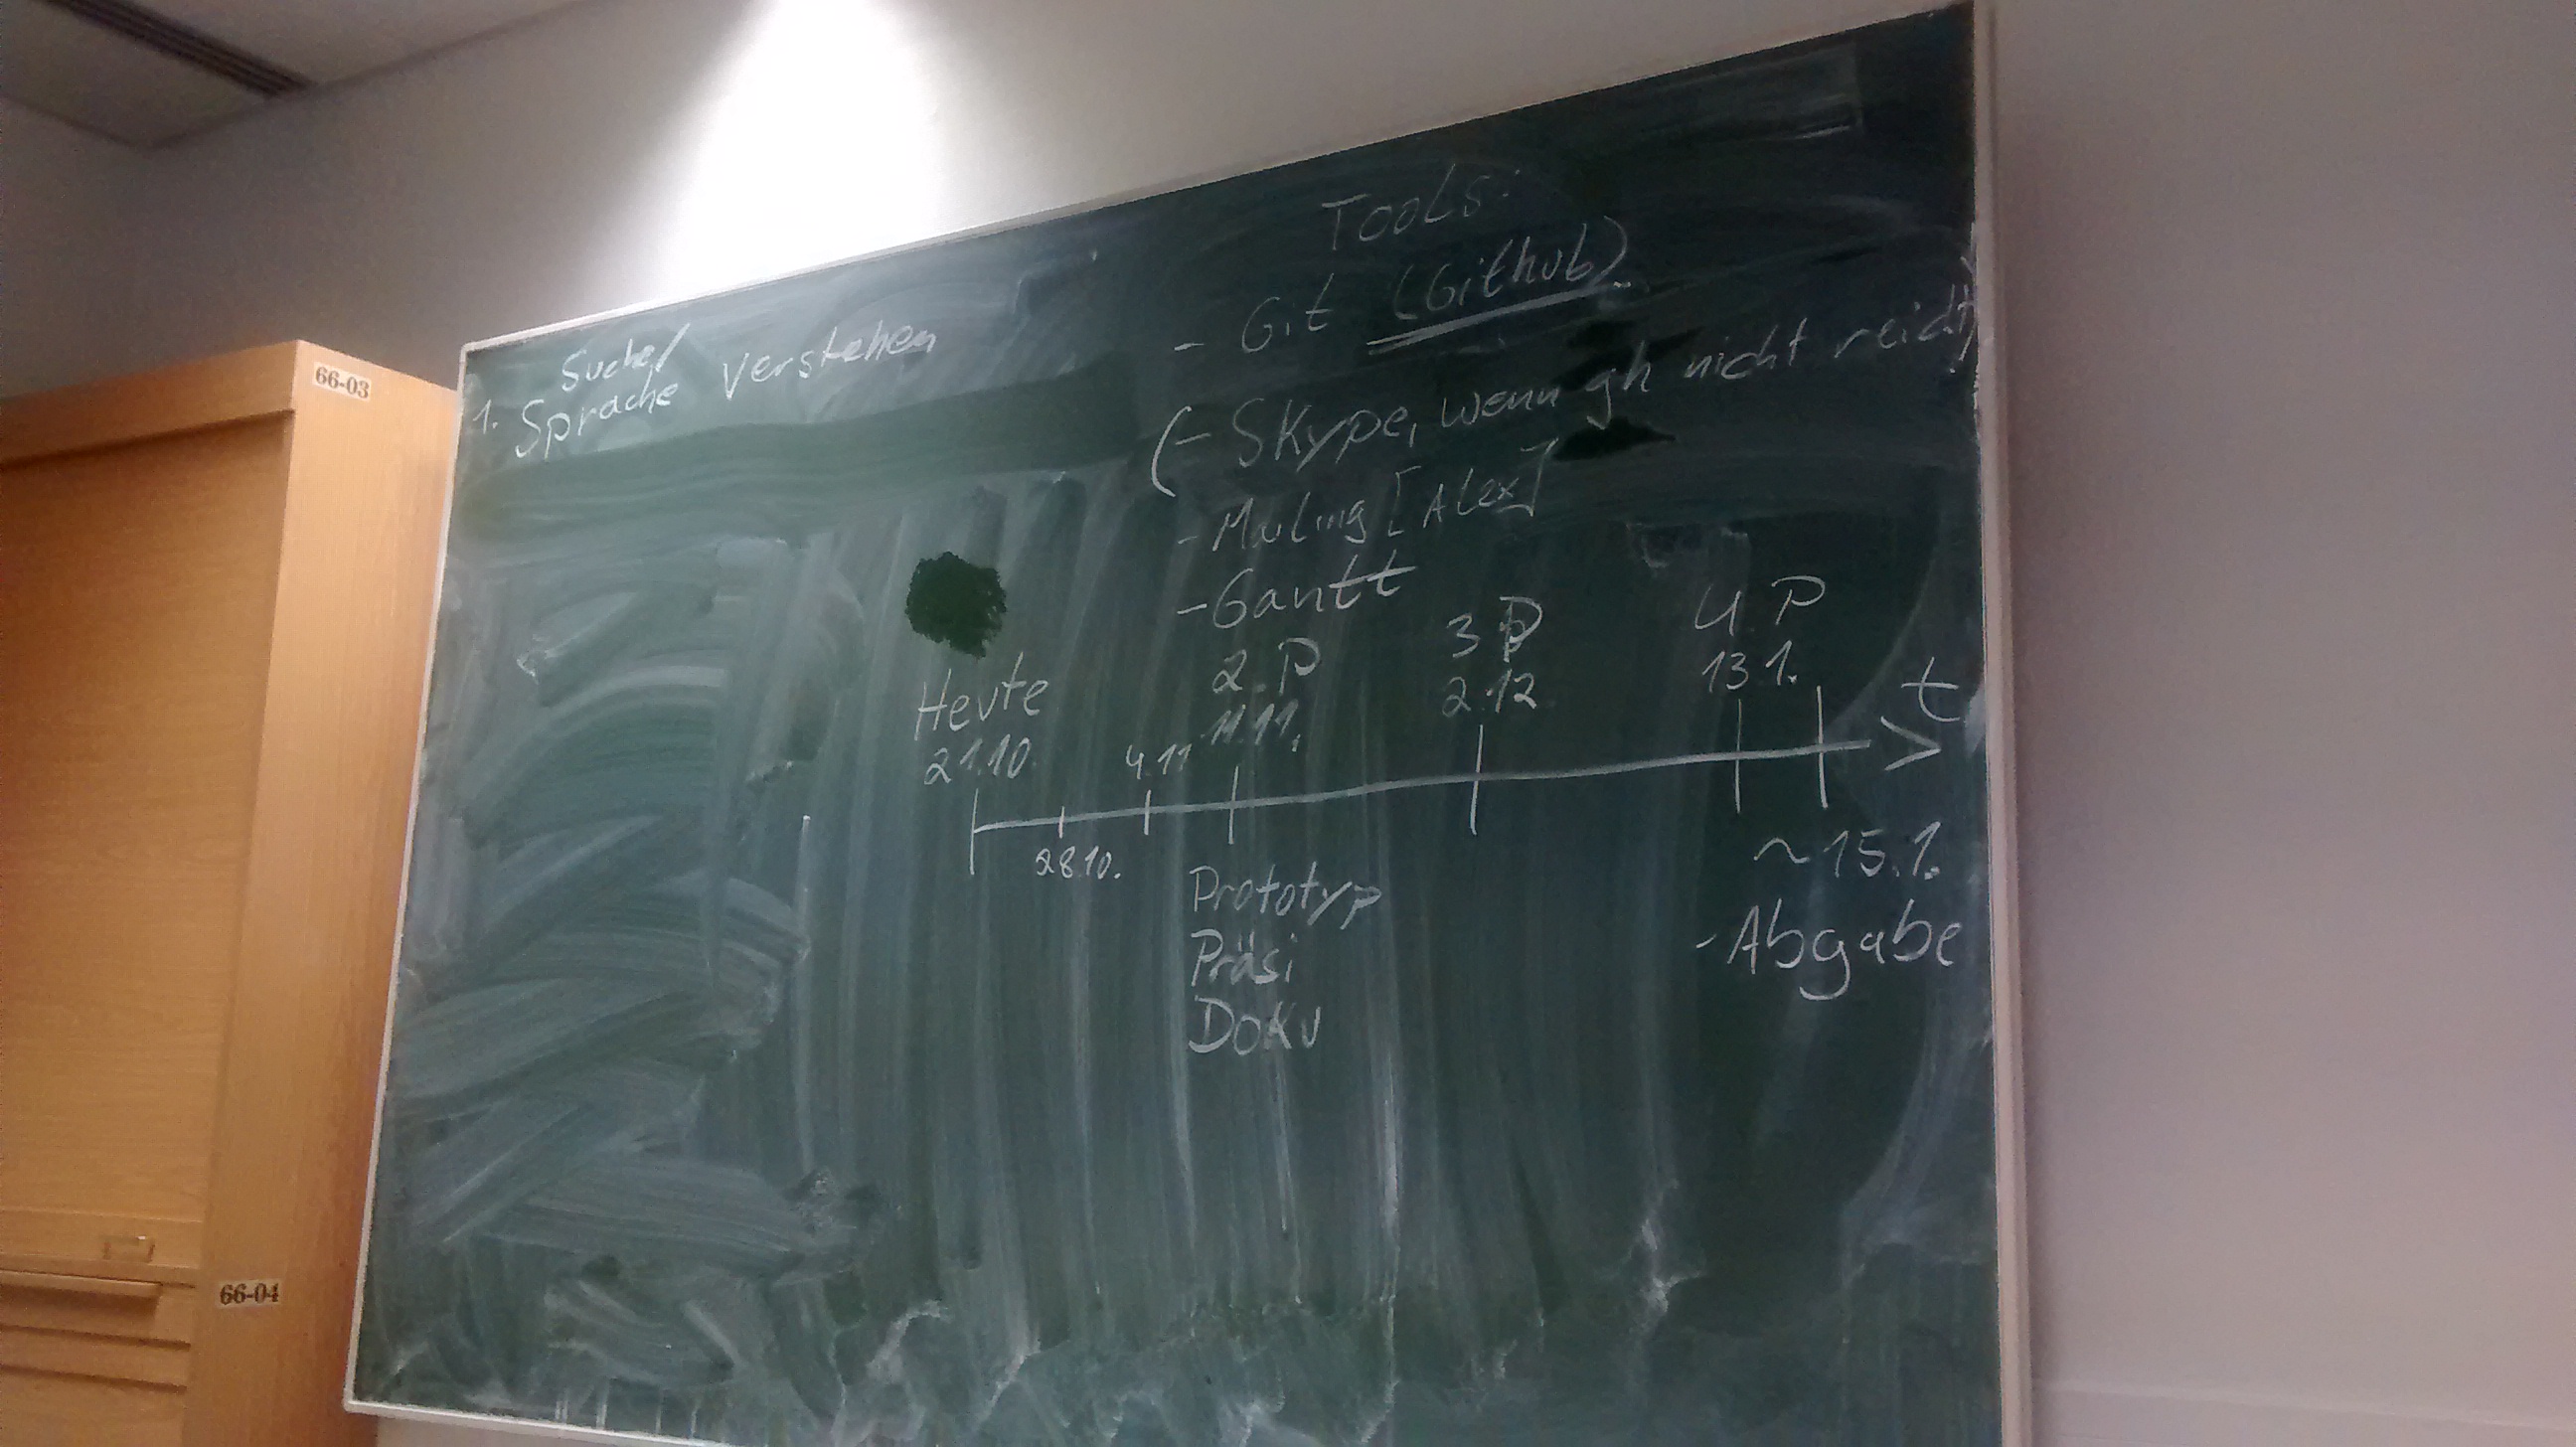 66-03
66-04
Suche/
1. Sprache verstehen
Tools:
- Git (Github)
(- Skype, wenn gh nicht reicht)
- Mailing [Alex]
- Gantt
Heute
21.10.
28.10.
4.11
2. P
11.11.
Prototyp
Präsi
Doku
3 P
2.12
4. P
13.1.
t
~15.1.
- Abgabe